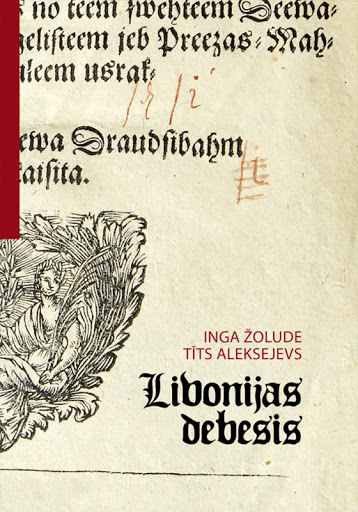 no teem ſwehteem Deewa⸗
geliſteem jeb Preezas⸗Mah⸗
usrak⸗
eewa Draudſibahm
taiſita.
INGA ŽOLUDE
TĪTS ALEKSEJEVS
Livonijas
debesis